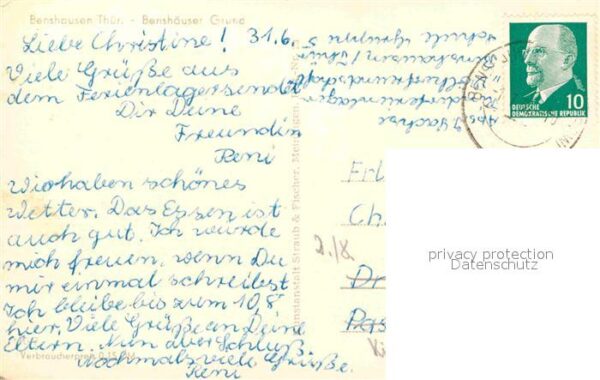 Benshausen Thür. - Benshäuser Grund
Liebe Christine! 31.6.
Viele Grüße aus
dem Ferienlager sendet
Dir Deine
Freundin
Reni
Wir haben schönes
Wetter. Das Essen ist
auch gut. Ich würde
mich freuen, wenn Du
mir einmal schreibst
Ich bleibe bis zum 10.8
hier. Viele Grüße an Deine
Eltern. Nun aber Schluß.
Nochmals viele Grüße.
Reni
Verbraucherpreis 0,15 DM
Kunstanstalt Straub & Fischer, Meiningen
Abs.
Benshausen/Thür
Schule Gruppe 5
DEUTSCHE
DEMOKRATISCHE REPUBLIK
10
2./8
privacy protection
Datenschutz